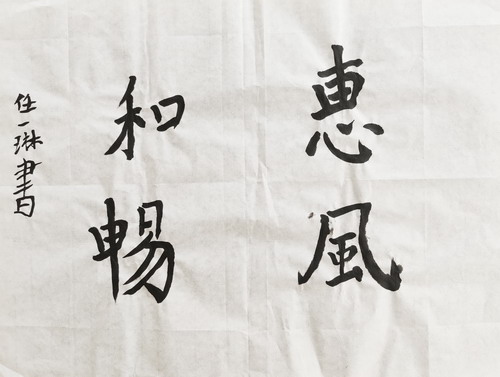 惠風
和暢
任一琳書